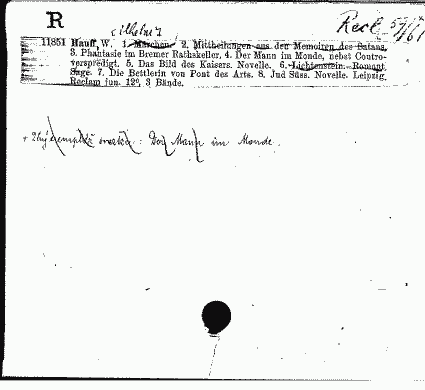 R
[ilhelm]
11851 Hauff, W. 1. Märchen. 2. Mittheilungen aus den Memoiren des Satans.
3. Phantasie im Bremer Rathskeller, 4. Der Mann im Monde, nebst Contro-
verspredigt. 5. Das Bild des Kaisers. Novelle. 6. Lichtenstein. Romant.
Sage. 7. Die Bettlerin von Pont des Arts. 8. Jud Süss. Novelle. Leipzig,
Reclam jun. 12º. 3 Bände.
: Der Mann im Monde.